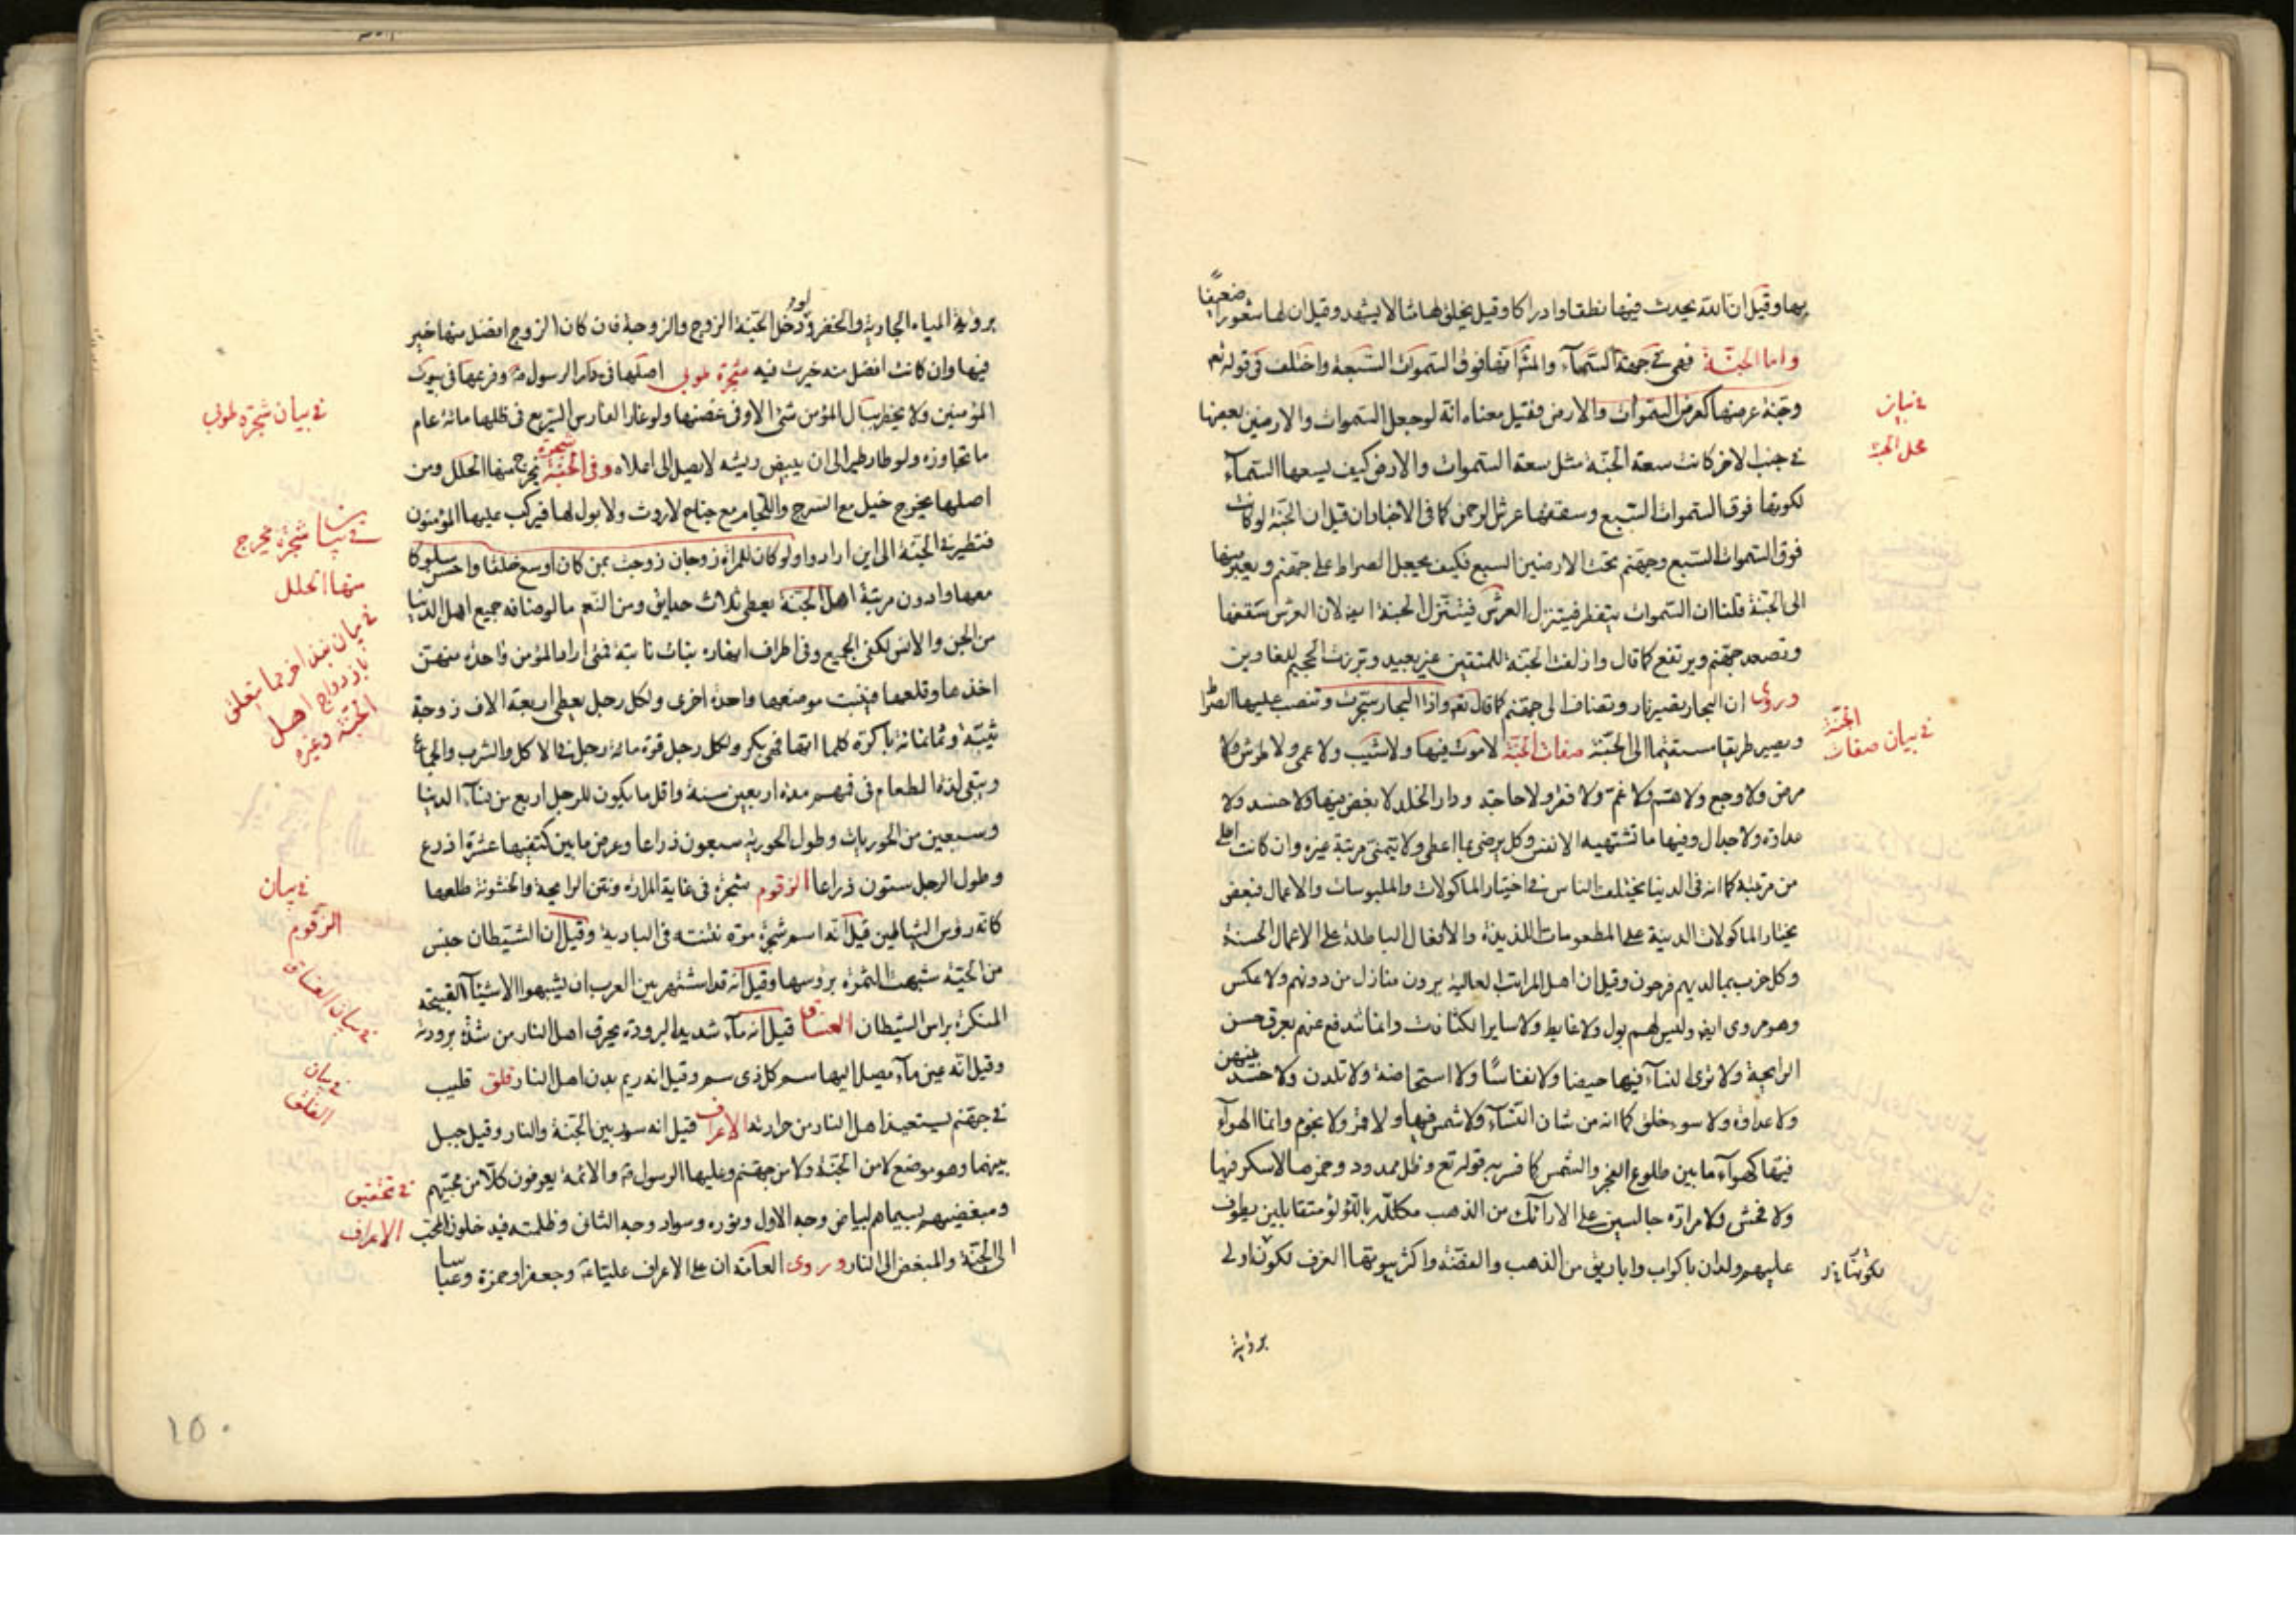 بها وقيل ان الله يحدث فيها نطقا وادراكا وقيل يخلق لها مثالا يشهد وقيل ان لها شعورا ضعيفا
واما الجنة فهي في جهة السماء والمش انها فوق السموات السبعة واختلف في قوله تع
وجنة عرضها كعرض السموات والارض فقيل معناه انه لو جعل السموات والارضين بعضها
في جنب الاخر كانت سعة الجنة مثل سعة السموات والارض كيف يسعها السماء
لكونها فوق السموات السبع وسقفها عرش الرحمن كما في الاخبار ان قيل ان الجنة لو كانت
فوق السموات السبع وجهنم تحت الارضين السبع فكيف يجعل الصراط على جهنم ويعبر منها
الى الجنة قلنا ان السموات يتفطر فيتنزل العرش فيتنزل الجنة ايض لان العرش سقفها
وتصعد جهنم ويرتفع كما قال وازلفت الجنة للمتقين غير بعيد وبرزت الجحيم للغاوين
وروى ان البحار يصير نار وتضاف الى جهنم كما قال تع واذا البحار سجرت وتنصب عليها الصراط
ويصير طريقا مستقيما الى الجنة صفات الجنة لا موت فيها ولا شيب ولا عمى ولا طرش ولا
مرض ولا وجع ولا هم ولا غم ولا فقر ولا حاجة ودار الخلد لا بغض فيها ولا حسد ولا
عداوة ولا جدال وفيها ما تشتهيه الانفس وكل يرضى بما اعطى ولا يتمنى مرتبة غيره وان كانت اعلى
من مرتبته كما انه في الدنيا يختلف الناس في اختيار الماكولات والملبوسات والاعمال فبعض
يختار الماكولات الدنية على المطعومات اللذيذة والافعال الباطلة على الاعمال الحسنة
وكل حزب بما لديهم فرحون وقيل ان اهل المراتب العالية يرون منازل من دونهم ولا عكس
وهو مروى ايض وليس لهم بول ولا غايط ولا ساير الكثافات وانما تندفع عنهم بعرق حسن
الرايحة ولا ترى النساء فيها حيضا ولا نفاسا ولا استحاضة ولا تلدن ولا حسد بينهن
ولا عداوة ولا سوء خلق كما انه من شان النساء ولا شمس فيها ولا قمر ولا نجوم وانما الهواء
فيها كهواء ما بين طلوع الفجر والشمس كما فسر به قوله تع وظل ممدود وخمرها لا سكر فيها
ولا فحش ولا مرارة جالسين على الارائك من الذهب مكلل بالؤلؤ متقابلين يطوف
عليهم ولدان باكواب واباريق من الذهب والفضة واكثر بيوتها الغرف لكونها اولى
برؤية
في بيان
محل الجنة
في بيان صفات
الجنة
برؤية المياه الجارية والخضر ولو دخل الجنة الزوج والزوجة فان كان الزوج افضل منها خير
فيها وان كانت افضل منه خيرت فيه شجرة طوبى اصلها في دار الرسول ص وفرعها في بيوت
المؤمنين ولا يخطر ببال المؤمن شئ الا وفي غصنها ولو غار الفارس السريع في ظلها مائة عام
ما تجاوزه ولو طار طير الى ان يبيض ريشه لا يصل الى اعلاه وفي الجنة شجرة يخرج منها الحلل ومن
اصلها يخرج خيل مع السرج واللجام مع جناح لا روث ولا بول لها فيركب عليها المؤمنون
فتطير في الجنة الى اين ارادوا ولو كان للمراة زوجان زوجت بمن كان اوسع خلقا واحسن سلوكا
معها وادون مرتبة اهل الجنة يعطى ثلاث حدايق ومن النعم ما لو ضافه جميع اهل الدنيا
من الجن والانس لكفى الجميع وفي اطراف انهاره بنات نابتة فمتى اراد المؤمن واحدة منهن
اخذها وقلعها فينبت موضعها واحدة اخرى ولكل رجل يعطى اربعة الاف زوجة
ثيبة وثمانمائة باكرة كلما اتاها فهي بكر ولكل رجل قوة مائة رجل في الاكل والشرب والجماع
ويبقى لذة الطعام في فمهم مدة اربعين سنة واقل ما يكون للرجل اربع من نساء الدنيا
وسبعين من الحوريات وطول الحورية سبعون ذراعا وعرض ما بين كتفيها عشرة اذرع
وطول الرجل ستون ذراعا الزقوم شجرة في غاية المرارة ونتن الرايحة والخشونة طلعها
كانه رؤس الشياطين قيل انه اسم شجرة مرة نتنته في البادية وقيل ان الشيطان جنس
من الحية شبهت الثمرة بروسها وقيل انه قد اشتهر بين العرب ان يشبهوا الاشياء القبيحة
المنكرة براس الشيطان الغساق قيل انه ماء شديد البرودة يحرق اهل النار من شدة برودته
وقيل انه عين ماء يصل اليها سم كل ذي سم وقيل انه ريم بدن اهل النار فلق قليب
في جهنم يستعيذ اهل النار من حرارته الاعراف قيل انه سور بين الجنة والنار وقيل جبل
بينهما وهو موضع لا من الجنة ولا من جهنم وعليها الرسول ص والائمة يعرفون كلا من محبيهم
ومبغضيهم بسيماهم لبياض وجه الاول ونوره وسواد وجه الثاني وظلمته فيدخلون المحب
الى الجنة والمبغض الى النار وروى العامة ان على الاعراف عليا ع وجعفر وحمزة وعباسا
في بيان شجرة طوبى
في بيان شجرة يخرج
منها الحلل
في بيان نبذ اخر مما يتعلق
بازدواج اهل
الجنة وغيره
في بيان
الزقوم
في بيان الغساق
في بيان
الفلق
في تحقيق
الاعراف
١٥٠